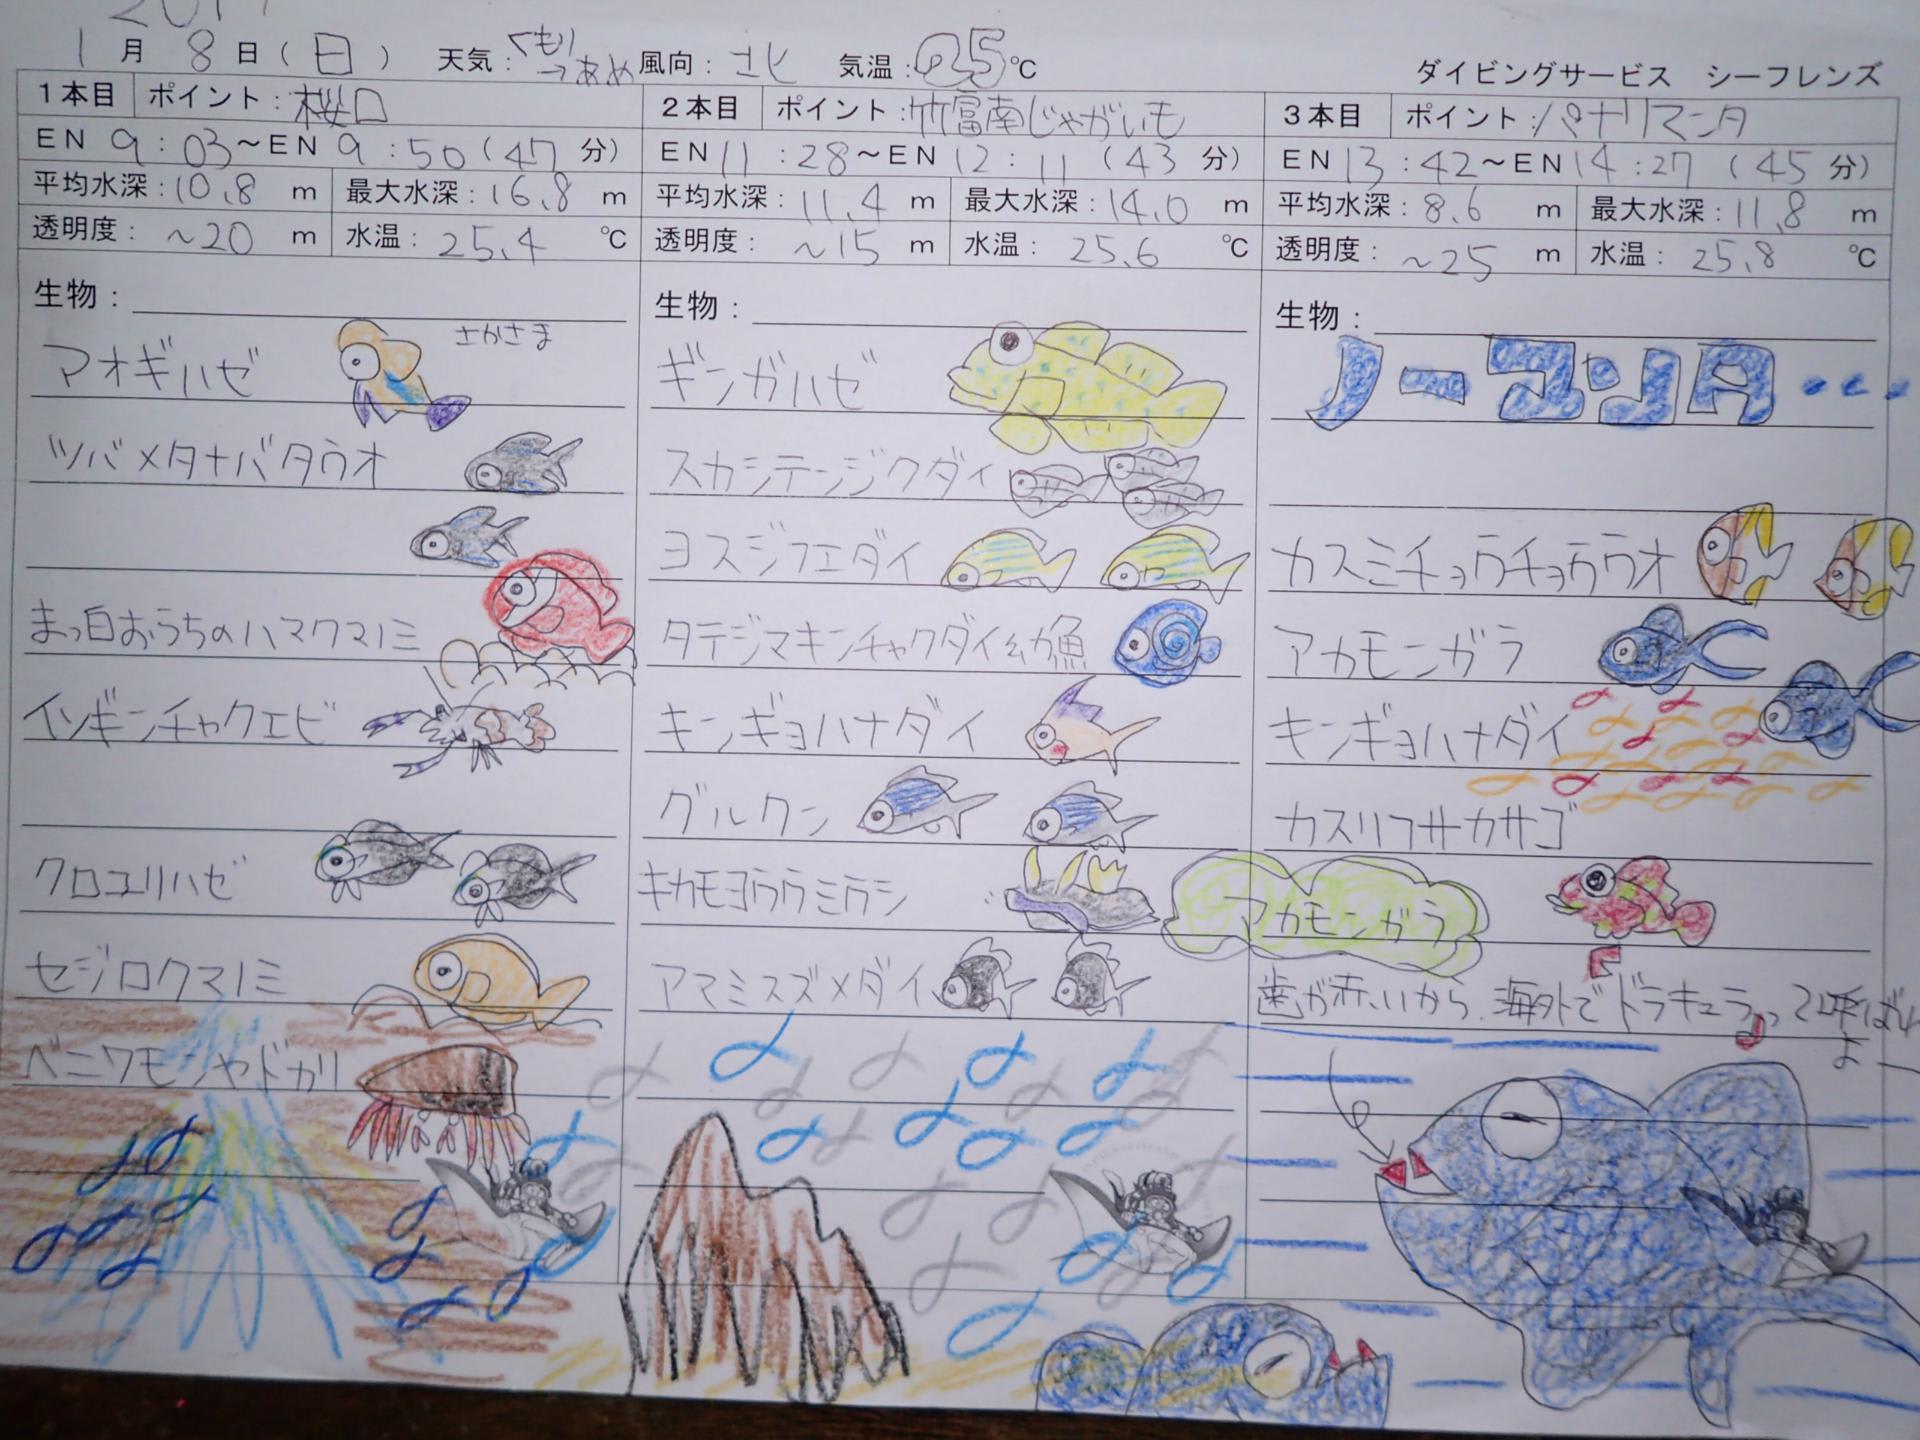 2017
1月8日(日) 天気:くもり→あめ 風向:北 気温:25℃
ダイビングサービス シーフレンズ
1本目 ポイント:桜口
EN 9:03~EN 9:50(47分)
平均水深:10.8m 最大水深:16.8m
透明度:~20m 水温:25.4℃
生物:
マオギハゼ さかさま
ツバメタナバタウオ
まっ白おうちのハマクマノミ
イソギンチャクエビ
クロユリハゼ
セジロクマノミ
ベニワモンヤドカリ
2本目 ポイント:竹富南じゃがいも
EN 11:28~EN 12:11(43分)
平均水深:11.4m 最大水深:14.0m
透明度:~15m 水温:25.6℃
生物:
ギンガハゼ
スカシテンジクダイ
ヨスジフエダイ
タテジマキンチャクダイ幼魚
キンギョハナダイ
グルクン
キカモヨウウミウシ
アマミスズメダイ
3本目 ポイント:パナリマンタ
EN 13:42~EN 14:27(45分)
平均水深:8.6m 最大水深:11.8m
透明度:~25m 水温:25.8℃
生物:
ノーマンタ・・・
カスミチョウチョウウオ
アカモンガラ
キンギョハナダイ
カスリフサカサゴ
アカモンガラ
歯が赤いから、海外でドラキュラって呼ばれ
よー